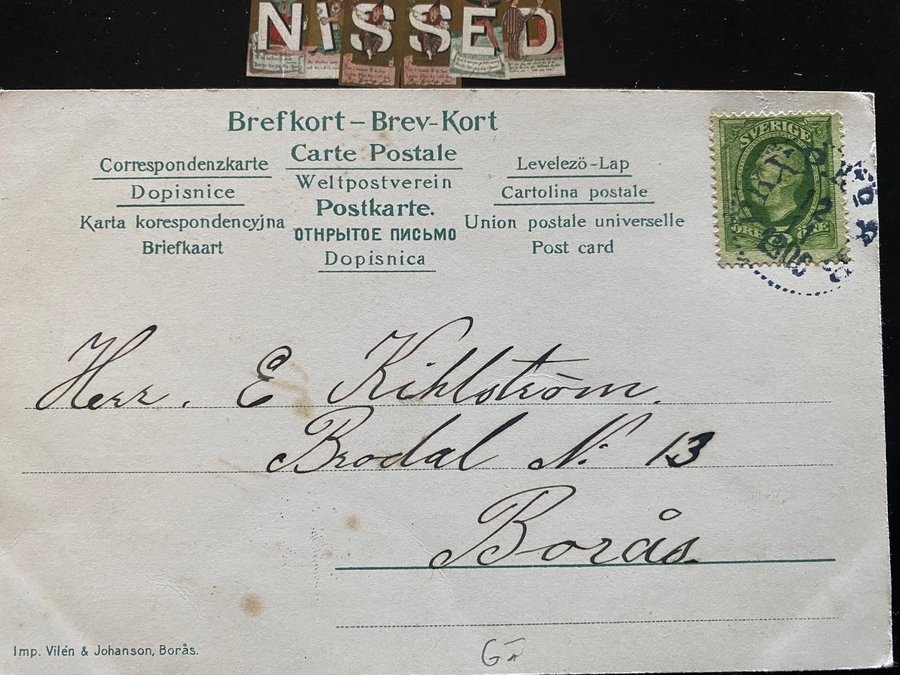 NISSED
Brefkort – Brev-Kort
Carte Postale
Correspondenzkarte
Levelező-Lap
Weltpostverein
Dopisnice
Cartolina postale
Postkarte.
Karta korespondencyjna
Union postale universelle
ОТКРЫТОЕ ПИСЬМО
Briefkaart
Post card
Dopisnica
SVERIGE
Herr. E Kihlström.
Brodal N: 13
Borås
Imp. Vilén & Johanson, Borås.